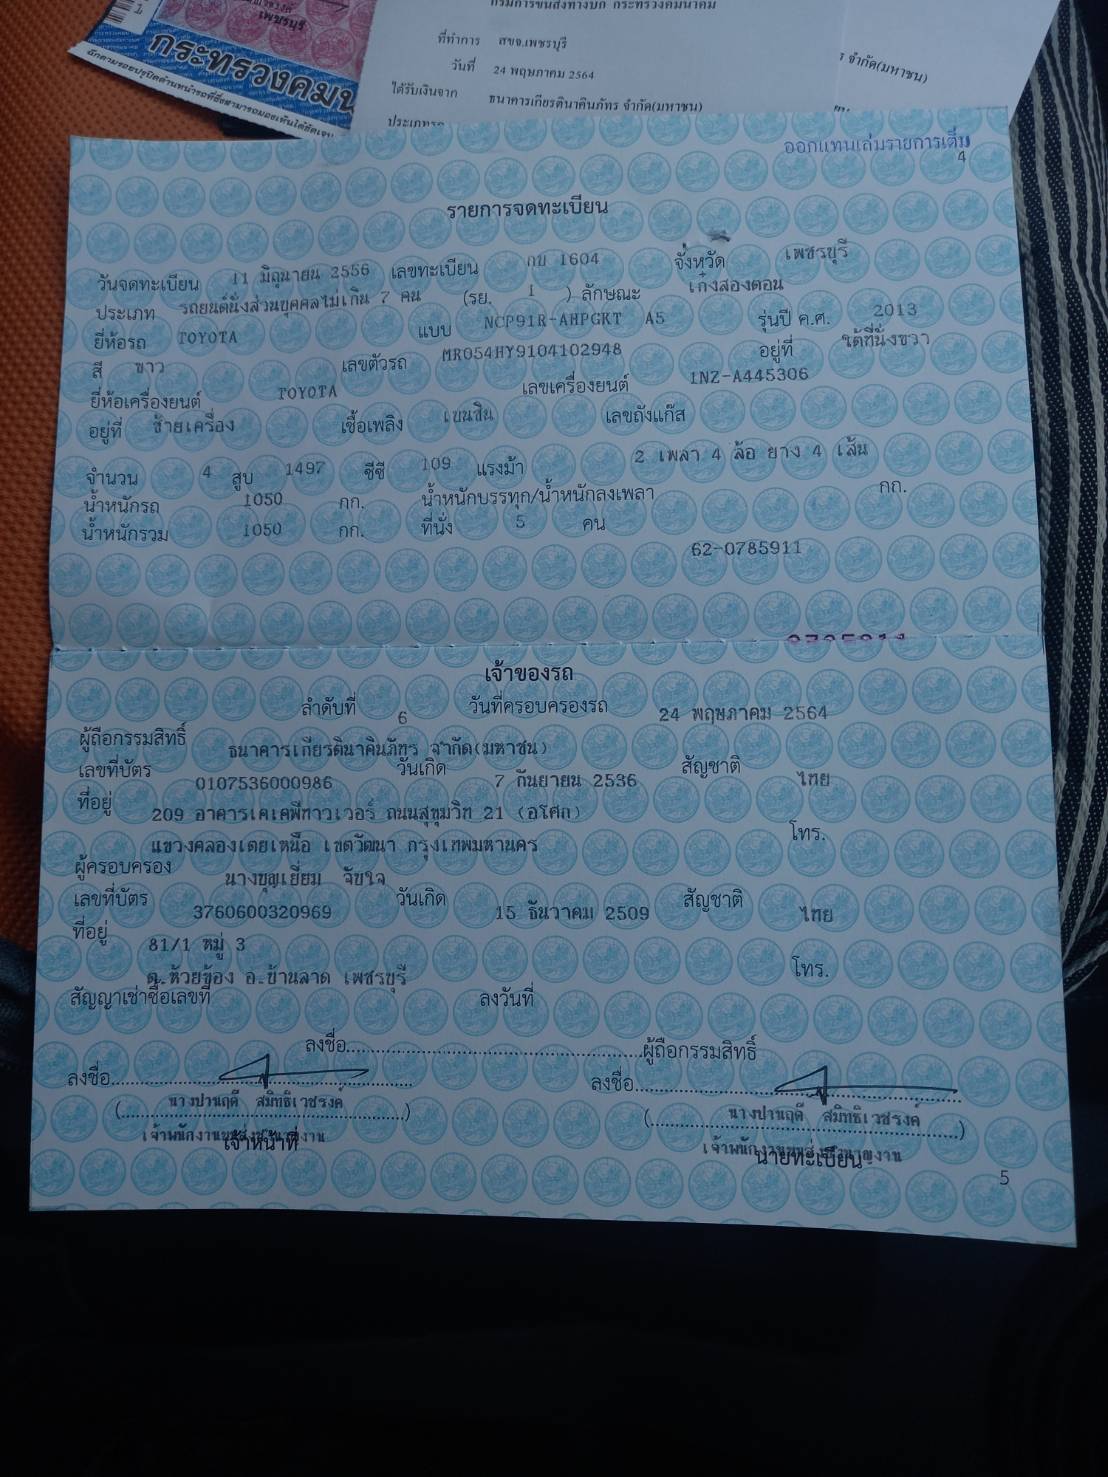 เพชรบุรี
กระทรวงคมน
กรมการขนส่งทางบก กระทรวงคมนาคม
ที่ทำการ สขจ.เพชรบุรี
วันที่ 24 พฤษภาคม 2564
ได้รับเงินจาก ธนาคารเกียรตินาคินภัทร จำกัด(มหาชน)
จำกัด(มหาชน)
ประเภทรถ
ออกแทนเล่มรายการเต็ม
4
รายการจดทะเบียน
วันจดทะเบียน 11 มิถุนายน 2556 เลขทะเบียน กบ 1604 จังหวัด เพชรบุรี
ประเภท รถยนต์นั่งส่วนบุคคลไม่เกิน 7 คน (รย. 1 ) ลักษณะ เก๋งสองตอน
ยี่ห้อรถ TOYOTA แบบ NCP91R-AHPGKT A5 รุ่นปี ค.ศ. 2013
สี ขาว เลขตัวรถ MR054HY9104102948 อยู่ที่ ใต้ที่นั่งขวา
ยี่ห้อเครื่องยนต์ TOYOTA เลขเครื่องยนต์ 1NZ-A445306
อยู่ที่ ซ้ายเครื่อง เชื้อเพลิง เบนซิน เลขถังแก๊ส
จำนวน 4 สูบ 1497 ซีซี 109 แรงม้า 2 เพลา 4 ล้อ ยาง 4 เส้น
น้ำหนักรถ 1050 กก. น้ำหนักบรรทุก/น้ำหนักลงเพลา กก.
น้ำหนักรวม 1050 กก. ที่นั่ง 5 คน
62-0785911
เจ้าของรถ
ลำดับที่ 6 วันที่ครอบครองรถ 24 พฤษภาคม 2564
ผู้ถือกรรมสิทธิ์ ธนาคารเกียรตินาคินภัทร จำกัด(มหาชน)
เลขที่บัตร 0107536000986 วันเกิด 7 กันยายน 2536 สัญชาติ ไทย
ที่อยู่ 209 อาคารเคเคพีทาวเวอร์ ถนนสุขุมวิท 21 (อโศก)
แขวงคลองเตยเหนือ เขตวัฒนา กรุงเทพมหานคร โทร.
ผู้ครอบครอง นางบุญเยี่ยม จับใจ
เลขที่บัตร 3760600320969 วันเกิด 15 ธันวาคม 2509 สัญชาติ ไทย
ที่อยู่ 81/1 หมู่ 3
ต.ห้วยข้อง อ.บ้านลาด เพชรบุรี โทร.
สัญญาเช่าซื้อเลขที่ ลงวันที่
ลงชื่อ............ผู้ถือกรรมสิทธิ์
ลงชื่อ............ ลงชื่อ............
(นางปานฤดี สมิทธิเวชรงค์) (นางปานฤดี สมิทธิเวชรงค์)
เจ้าพนักงานขนส่งชำนาญงาน เจ้าพนักงานขนส่งชำนาญงาน
เจ้าหน้าที่ นายทะเบียน
5